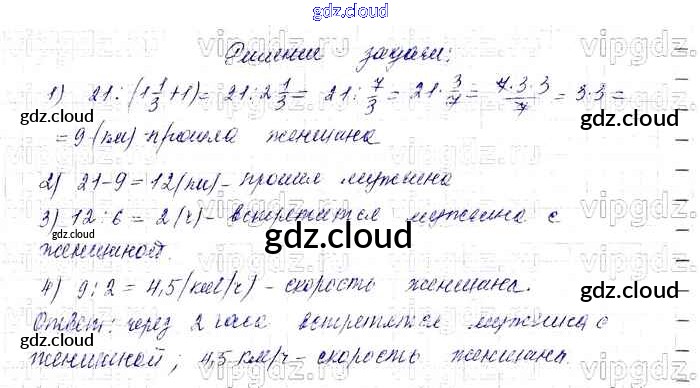 gdz.cloud
Решение задачи:
1) 21:(1 1/3+1)= 21:2 1/3= 21: 7/3 = 21· 3/7 = 7·3·3/7 = 3·3=
= 9 (км) - прошла женщина
2) 21-9=12(км)- прошёл мужчина
3) 12:6 = 2(ч)- встретится мужчина с
женщиной.
4) 9:2 = 4,5(км/ч) - скорость женщины.
Ответ: через 2 часа встретятся мужчина с
женщиной; 4,5 км/ч - скорость женщины.
vipgdz.vipgdz.vipgdz.
gdz.cloud
gdz.cloud
gdz.cloud
gdz.cloud
gdz.cloud
gdz.cloud
gdz.cloud
gdz.cloud